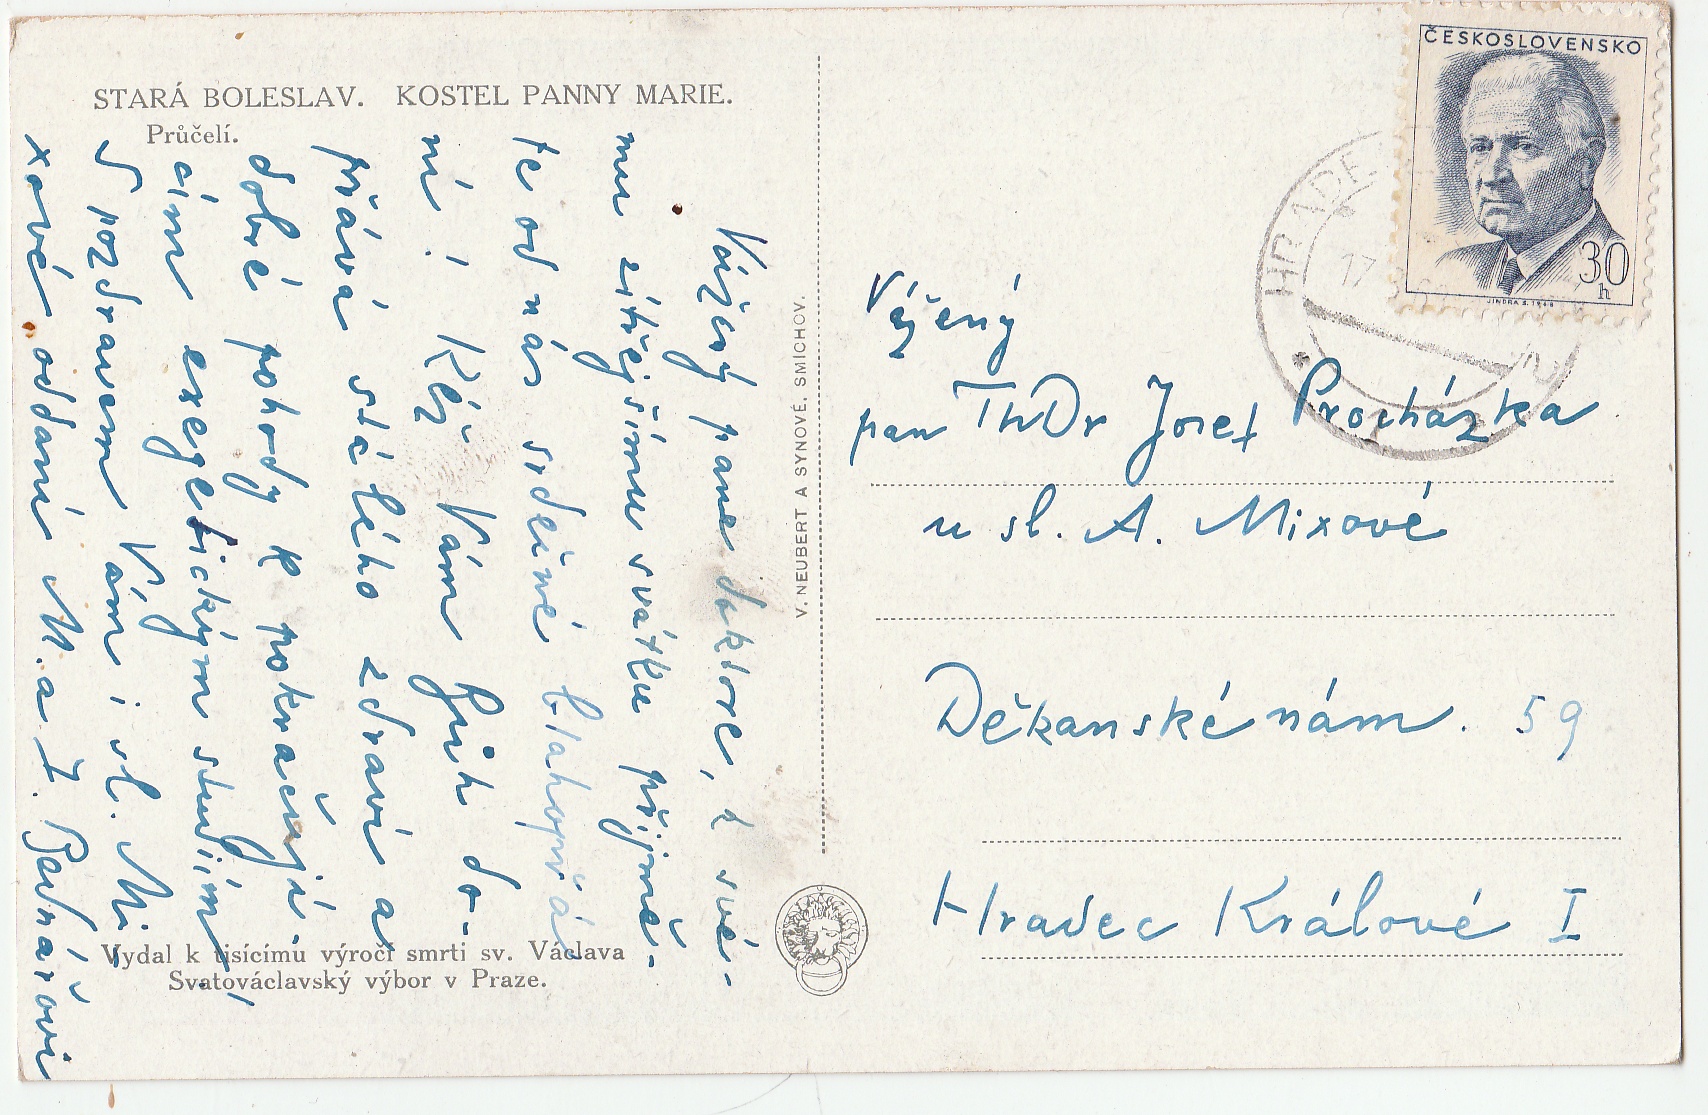 STARÁ BOLESLAV. KOSTEL PANNY MARIE.
Průčelí.
Vážený pane doktore, k své-
mu zítřejšímu svátku přijmě-
te od nás srdečné blahopřá
ní! Kéž Vám Bůh do-
přává stálého zdraví a
dobré pohody k pokračují-
cím exegetickým studiím!
S pozdravem Vám i sl. Mi-
xové oddaní M. a J. Bednářovi
Vydal k tisícímu výročí smrti sv. Václava
Svatováclavský výbor v Praze.
V. NEUBERT A SYNOVÉ, SMÍCHOV.
ČESKOSLOVENSKO
30
h
JINDRA S. 1948
HRADEC
17
Vážený
pan ThDr Josef Procházka
u sl. A. Mixové
Děkanské nám. 59
Hradec Králové I